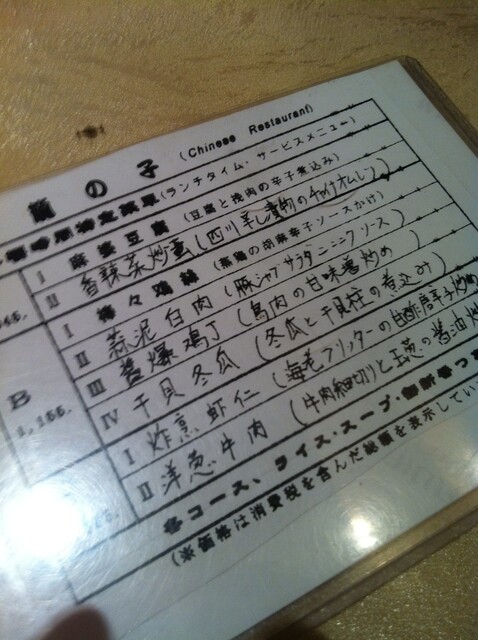 龍の子 (Chinese Restaurant)
(ランチタイム・サービスメニュー)
I 麻婆豆腐 (豆腐と挽肉の辛子煮込み)
II 香辣菜炒蛋 (四川辛し漬物の オムレツ)
I 棒々鶏絲 (蒸鶏の胡麻辛子ソースかけ)
II 蒜泥白肉 (豚シャブサラダニンニクソース)
III 醤爆鶏丁 (鳥肉の甘味噌炒め)
B
1,155.
IV 干貝冬瓜 (冬瓜と干貝柱の煮込み)
I 炸烹虾仁 (海老フリッターの甘酢唐辛子炒め
II 洋葱牛肉 (牛肉細切りと玉葱の醤油炒
各コース、ライス・スープ・
(※価格は消費税を含んだ総額を表示してい